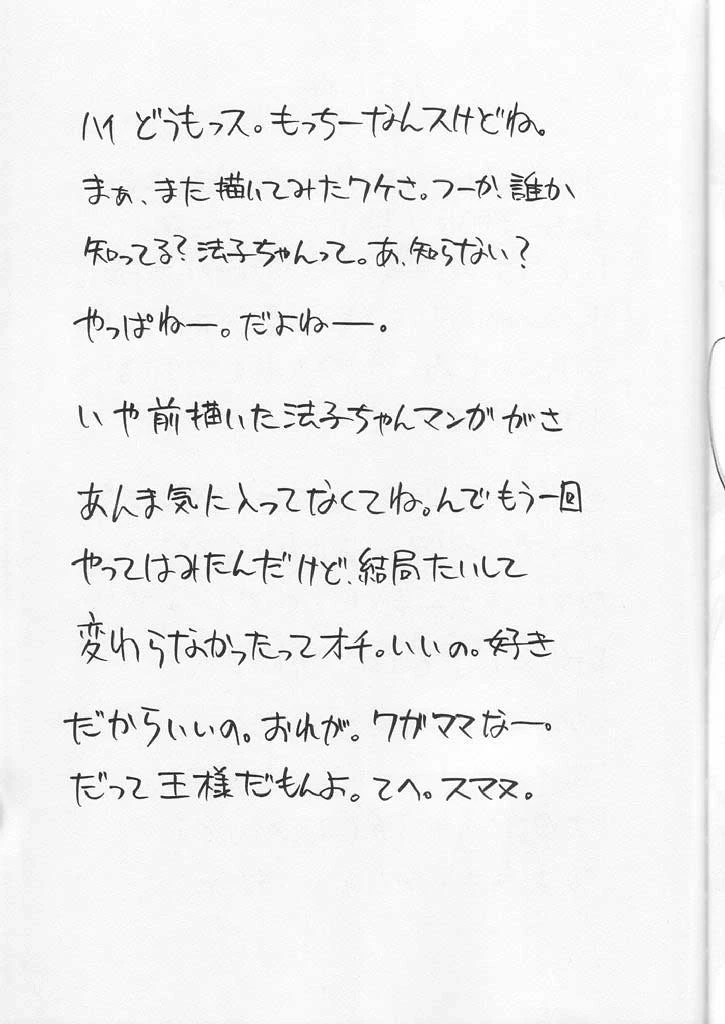 ハイ どうもっス。もっちーなんスけどね。
まぁ、また描いてみたワケさ。つーか、誰か
知ってる?法子ちゃんって。あ、知らない?
やっぱねー。だよねー。
いや前描いた法子ちゃんマンガがさ
あんま気に入ってなくてね。んでもう一回
やってはみたんだけど、結局たいして
変わらなかったってオチ。いいの。好き
だからいいの。おれが。ワガママなー。
だって王様だもんよ。てへ。スマヌ。